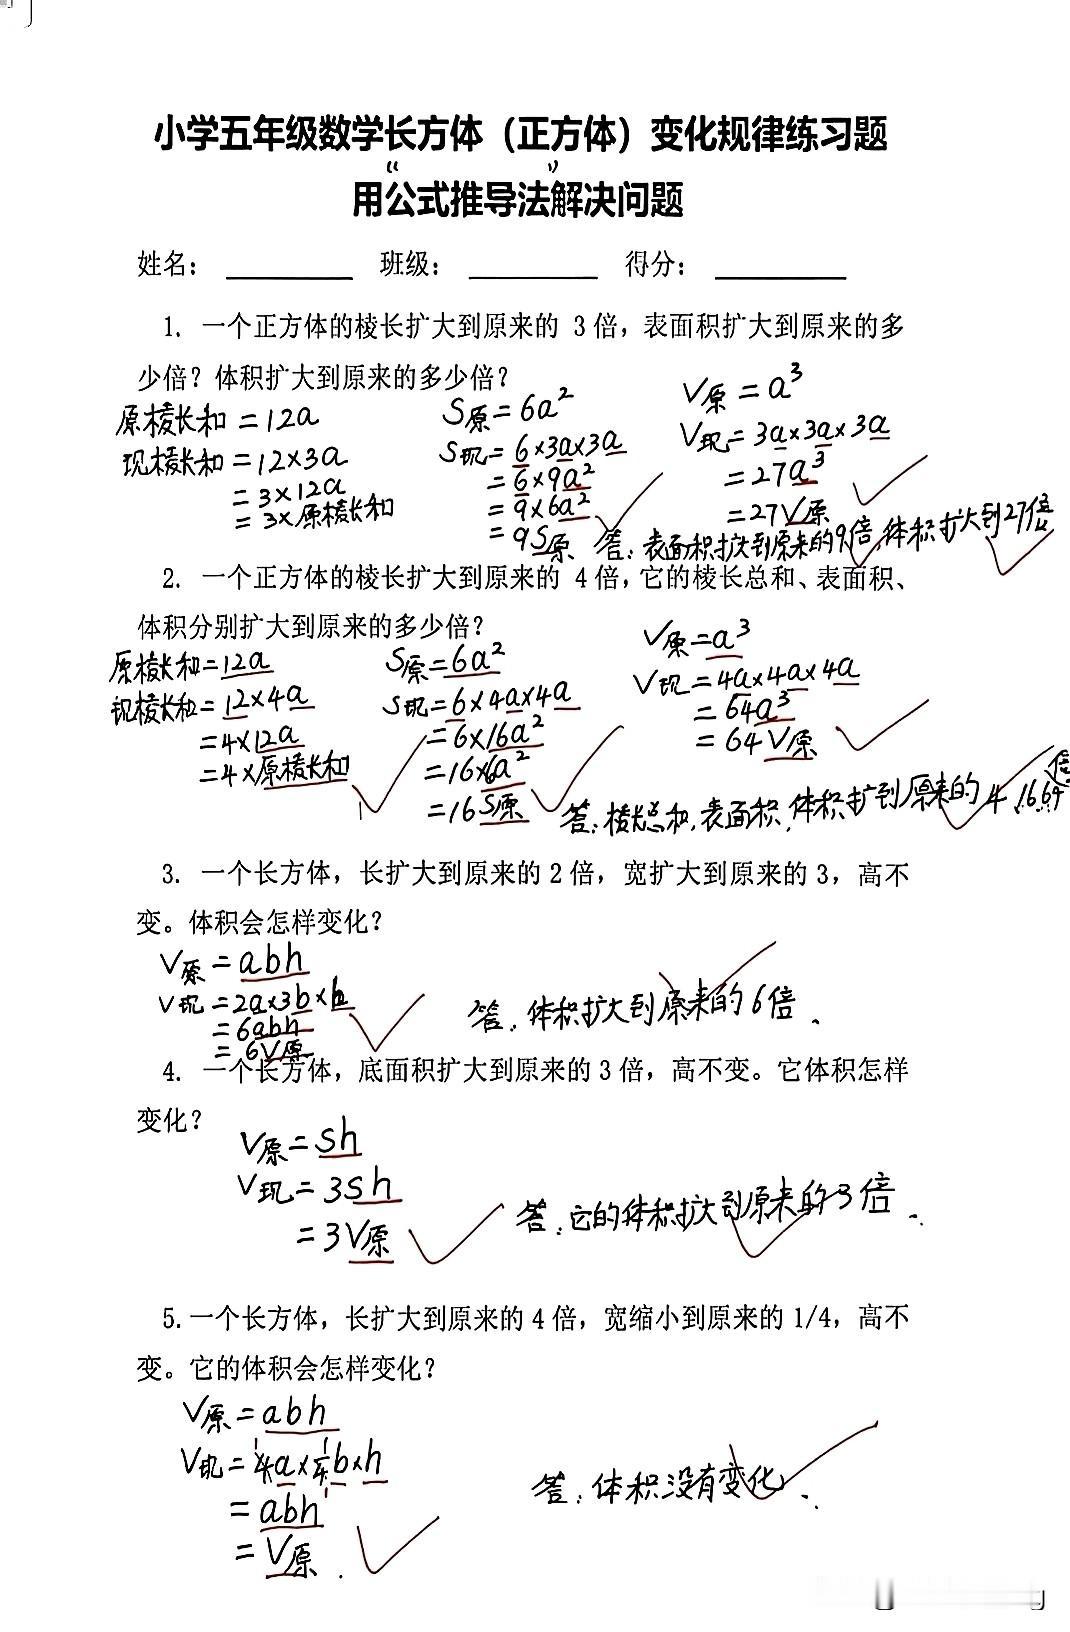 小学五年级数学长方体（正方体）变化规律练习题
用“公式推导法”解决问题
姓名： 班级： 得分：
1. 一个正方体的棱长扩大到原来的 3倍，表面积扩大到原来的多
少倍？体积扩大到原来的多少倍？
原棱长和=12a
现棱长和=12×3a
=3×12a
=3×原棱长和
S原=6a²
S现=6×3a×3a
=6×9a²
=9×6a²
=9S原
V原=a³
V现=3a×3a×3a
=27a³
=27V原
答：表面积扩大到原来的9倍,体积扩大到27倍
2. 一个正方体的棱长扩大到原来的 4倍，它的棱长总和、表面积、
体积分别扩大到原来的多少倍？
原棱长和=12a
现棱长和=12×4a
=4×12a
=4×原棱长和
S原=6a²
S现=6×4a×4a
=6×16a²
=16×6a²
=16S原
V原=a³
V现=4a×4a×4a
=64a³
=64V原
答：棱长总和,表面积,体积扩到原来的4,16,64倍
3. 一个长方体，长扩大到原来的2倍，宽扩大到原来的3，高不
变。体积会怎样变化？
V原=abh
V现=2a×3b×h
=6abh
=6V原
答：体积扩大到原来的6倍.
4. 一个长方体，底面积扩大到原来的3倍，高不变。它体积怎样
变化？
V原=sh
V现=3sh
=3V原
答：它的体积扩大到原来的3倍.
5.一个长方体，长扩大到原来的4倍，宽缩小到原来的1/4，高不
变。它的体积会怎样变化？
V原=abh
V现=4a×1/4b×h
=abh
=V原.
答：体积没有变化.